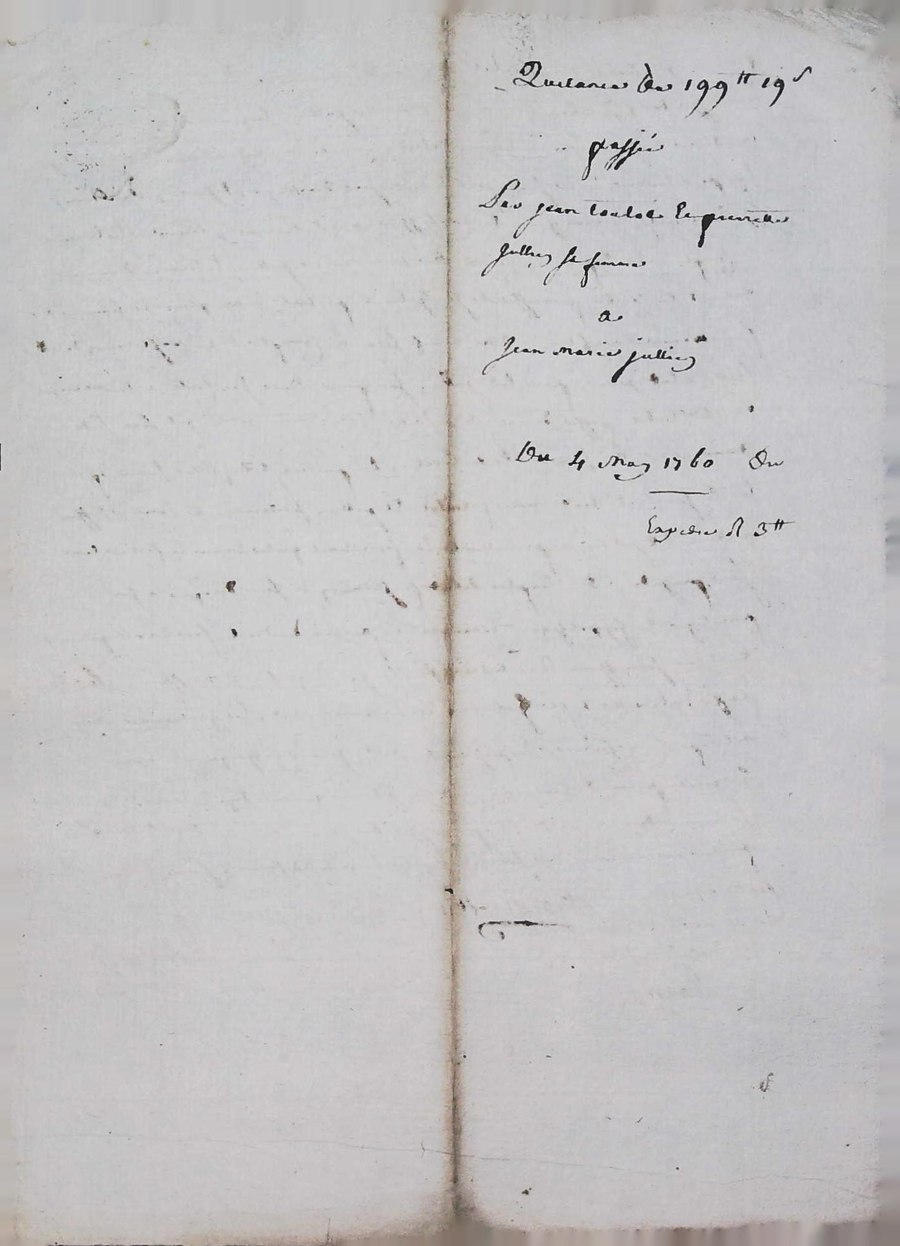 Quittance De 199tt 19s
passée
Par jean Et pierrette
jullien sa femme
a
Jean Marie jullien
Du 4 May 1760 Du
Expedié 3tt